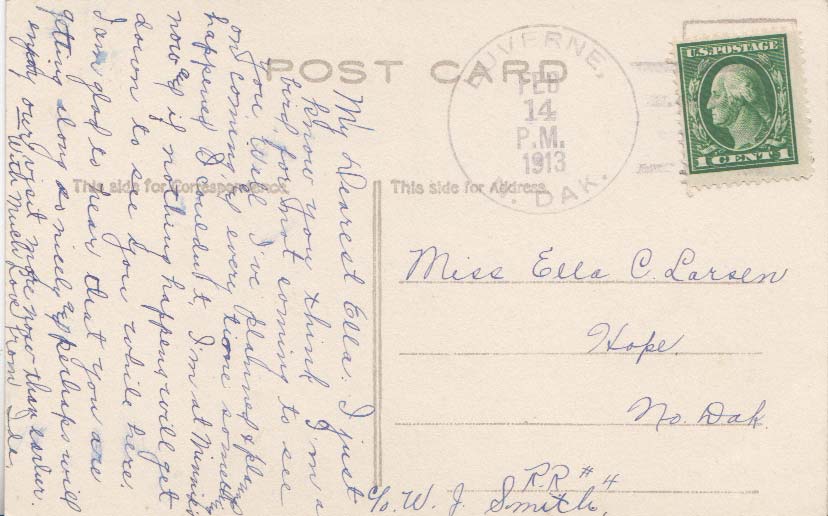 POST CARD
LUVERNE,
FEB
14
P.M.
1913
N. DAK.
U.S. POSTAGE
1 CENT 1
This side for Correspondence.
This side for Address.
My Dearest Ella. I just
know you think I'm a
bird for not coming to see
you. Well I've planned & plan
on coming & every time someth
happened I couldn't, I'm at Minnie's
now & if nothing happens will get
down to see you while here.
I am glad to hear that you are
getting along so nicely & perhaps will
enjoy our visit more now than earlier.
With much love from Ida,
Miss Ella C. Larsen
Hope.
No. Dak.
R.R #4
c/o. W. J. Smith,